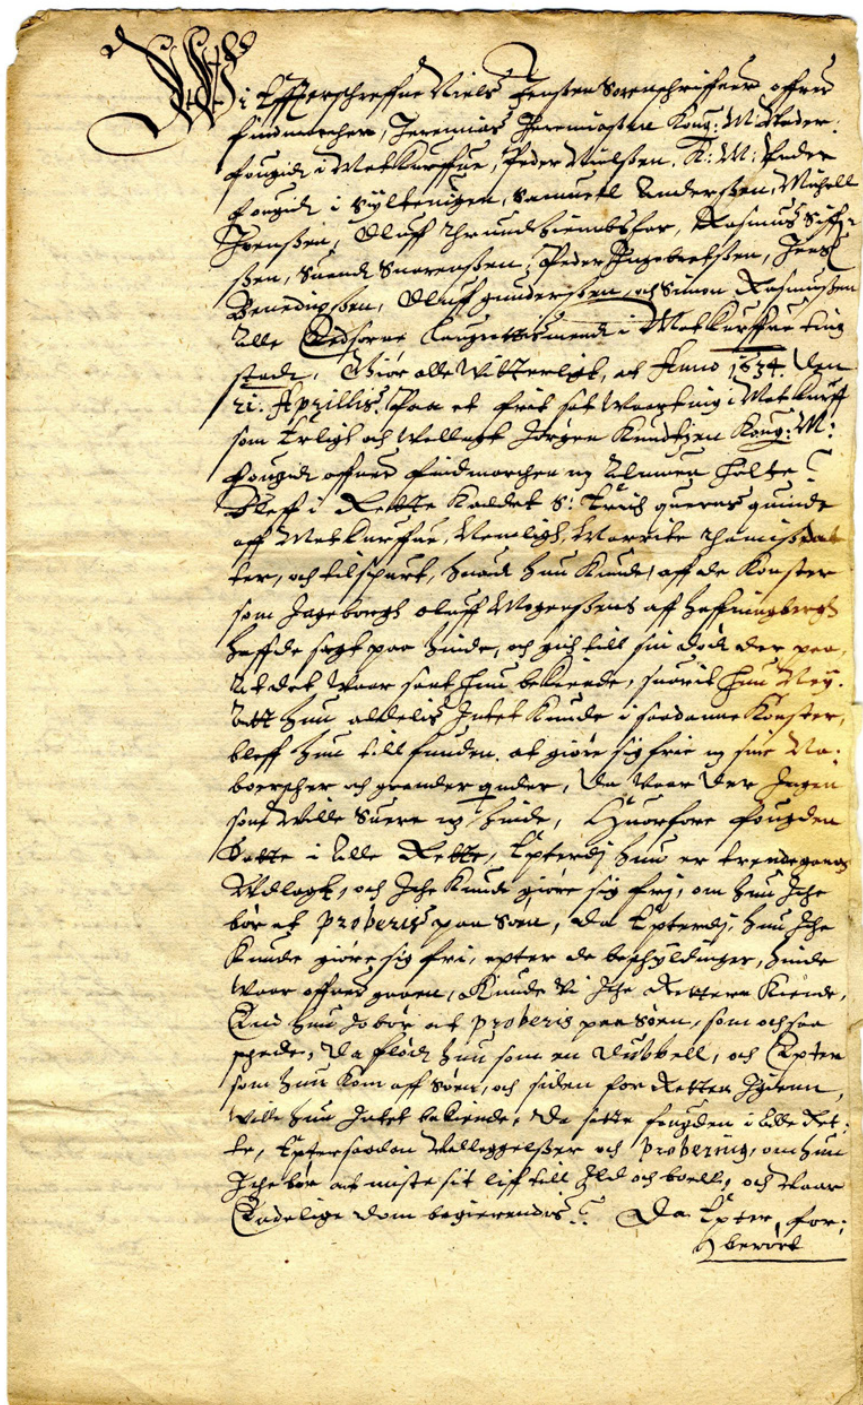 Wi Effterschreffne Niels Jensen Sorenschriffuer offuer
findmarchen, Jeremias Jeremiasen Kong: M: Under:
fougid i Matkurffue, Peder Nielsen. K: M: Under
fougid i Sylteuigen, Samuell Andersen, Michell
Jensen, Oluff Thrundhiembsfar, Rasmus Siffr
ßen, Suend Snorensen, Peder Ingebretsen, Jens
Benedicßen, Oluff gundersen, och Simon Rasmusen
Alle Edsorne Laugrettismend i Matkurffue ting
sted, Giør alle Vitterligt, at Anno 1634. den
21. Aprillis. Paa et frit sat Waarting i Matkurff
som Erligh och Welacht Jørgen Knudtzen Kong: M:
fougid offuer findmarchen m Almuen holte
Bleff i Rette Kaldet S: Erich queens quinde
aff Matkurffue, Nemeligh, Marrite Thamisdat
ter, och tilspurt, huad hun Kunde, aff de Konster
som Ingeborgh oluff Mogensens aff haffningbergh
haffde sagt paa hinde, och gich till sin død der paa,
At det Waar sant hun bekiende, suarit hun Ney.
Att hun aldelis Intet Kunde i saadanne Konster,
bleff hun till funden. at giøre sig frie m sine Na:
boerscher och grander quder, da Waar der Ingen
som Wille Suere m hinde, Huorfore fougden
Satte i Alle Rette, Epterdj hun er trende gange
Udlagt, och Iche Kunde giøre sig frj, om hun Iche
bør at proberis paa Søen, da Epterdj, hun Iche
Kunde giøre sig fri, epter de beschyldinger, hinde
Waar offuer gaaen, Kunde Vi Iche Rettere Kiende,
End hun Jo bør at proberis paa Søen, som och saa
schede, da fløed hun som en Dubbell, och Epter
som hun Kom aff Søen, och siden for Retten Igienn,
Wille hun Intet bekiende, da sette fougden i Alle Ret:
te, Epter saadan Udleggelser och probering, om hun
Iche bør at miste sit liff till Ild och baell, och Waar
Endelige dom begierendis. Da Epter, for:
berørt